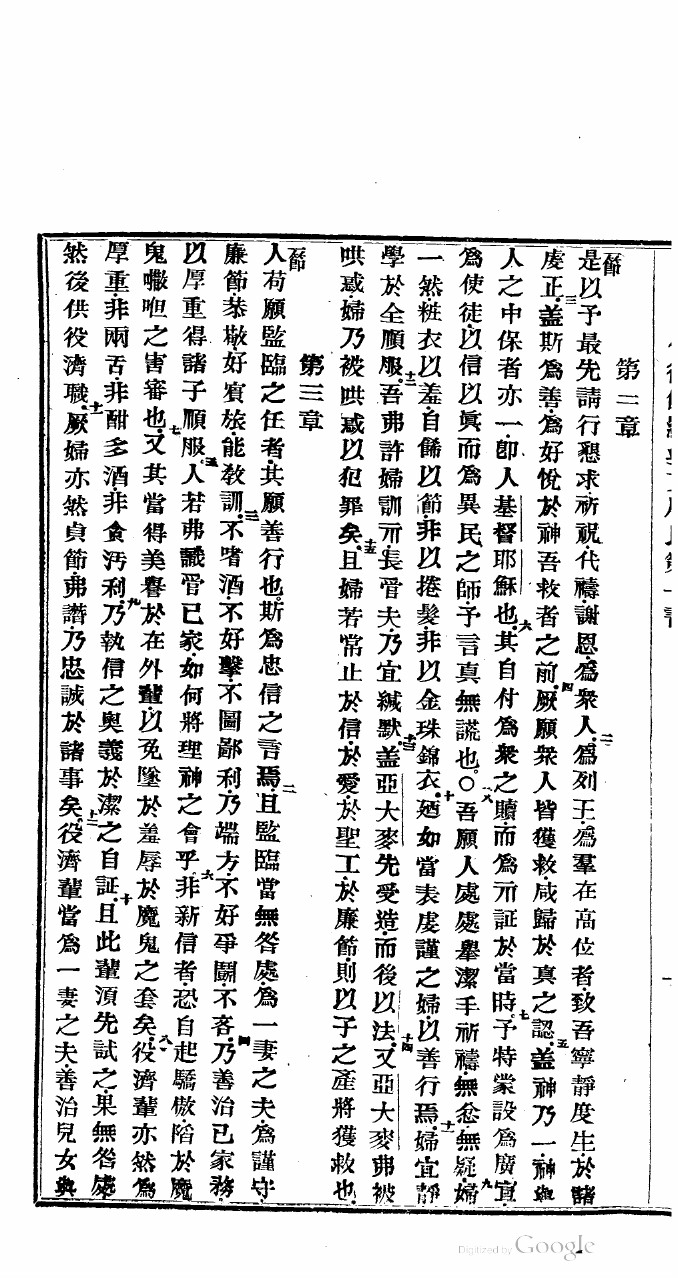 第二章
一節 是以予最先請行懇求祈祝代禱謝恩爲衆人二爲列王爲羣在高位者致吾寧靜度生於諸
虔正三蓋斯爲善爲好悅於神吾救者之前四厥願衆人皆獲救咸歸於真之認五蓋神乃一神與
人之中保者亦一卽人基督耶穌也六其自付爲衆之贖而爲示証於當時七予特棠設爲廣宣
爲使徒以信以眞而爲異民之師予言真無謊也〇八吾願人處處舉潔手祈禱無忿無疑九婦
一然粧衣以羞自餙以節非以捲髮非以金珠錦衣十廼如當表虔謹之婦以善行焉十一婦宜靜
學於全順服十二吾弗許婦訓示長管夫乃宜緘默十三蓋亞大麥先受造而後以法十四又亞大麥弗被
哄惑婦乃被哄惑以犯罪矣十五且婦若常止於信於愛於聖工於廉節則以子之產將獲救也
第三章
一節 人苟願監臨之任者其願善行也斯爲忠信之言焉二且監臨當無咎處爲一妻之夫爲謹守
廉節恭敬好賓旅能敎訓三不嗜酒不好擊不圖鄙利乃端方不好爭鬬不吝四乃善治已家務
以厚重得諸子順服五人若弗識管已家如何將理神之會乎六非新信者恐自起驕傲陷於魔
鬼𡂖呾之害審也七又其當得美譽於在外輩以免墜於羞辱於魔鬼之套矣八役濟輩亦然爲
厚重非兩舌非酣多酒非貪污利九乃執信之奥義於潔之自証十且此輩湏先試之果無咎處
然後供役濟職十一厥婦亦然貞節弗譖乃忠誠於諸事矣十二役濟輩當爲一妻之夫善治兒女與
Digitized by Google